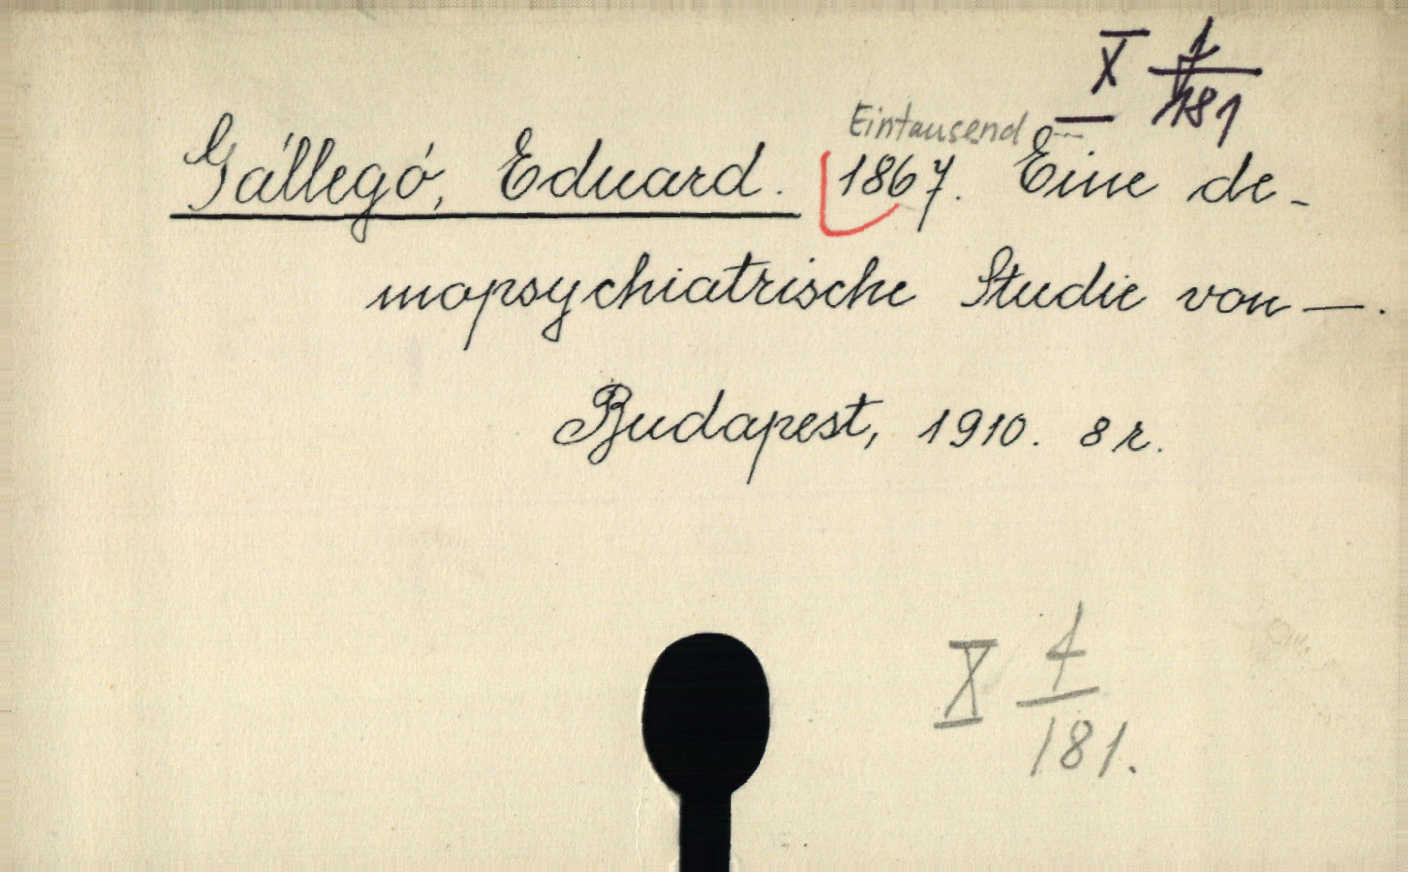 X 1/181
Eintausend ...
Gállegó, Eduard. 1867. Eine de-
mopsychiatrische Studie von —.
Budapest, 1910. 8 r.
X f/181.